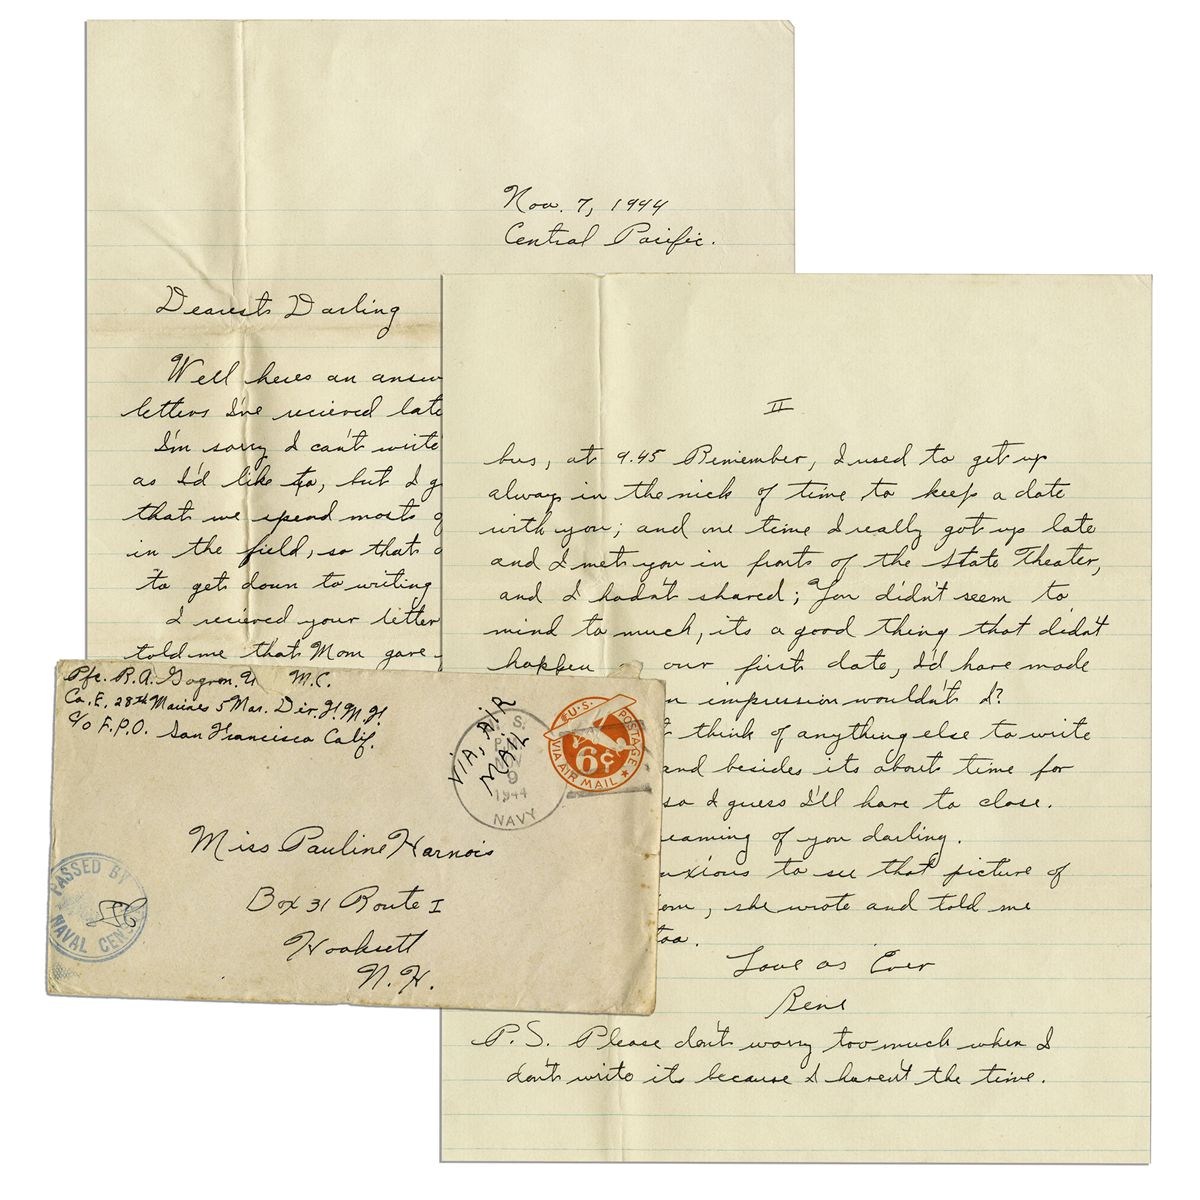 Nov. 7, 1944
Central Pacific.
Dearest Darling
Well heres an answ
letters I've recieved late
I'm sorry I can't write
as I'd like to, but I g
that we spend most o
in the field, so that
to get down to writing
I recieved your letter
told me that Mom gave
II
bus, at 9.45 Remember, I used to get up
always in the nick of time to keep a date
with you; and one time I really got up late
and I met you in front of the State Theater,
and I hadn't shaved; You didn't seem to
mind to much, its a good thing that didn't
happen our first date, I'd have made
n impression wouldn't I?
t think of anything else to write
and besides its about time for
so I guess I'll have to close.
reaming of you darling.
nxious to see that picture of
om, she wrote and told me
too.
Love as Ever
Rene
P.S. Please don't worry too much when I
don't write its because I haven't the time.
Pfc. R. A. Gagnon, U M.C.
Co. E. 28th Marines 5 Mar. Div.
C/o F.P.O. San Francisco Calif.
VIA, AIR
MAIL
U.S.
NOV
9
1944
NAVY
U.S. POSTAGE
6¢
VIA AIR MAIL
Miss Pauline Harnois
Box 31 Route 1
Hooksett
N.H.
PASSED BY
NAVAL CENS